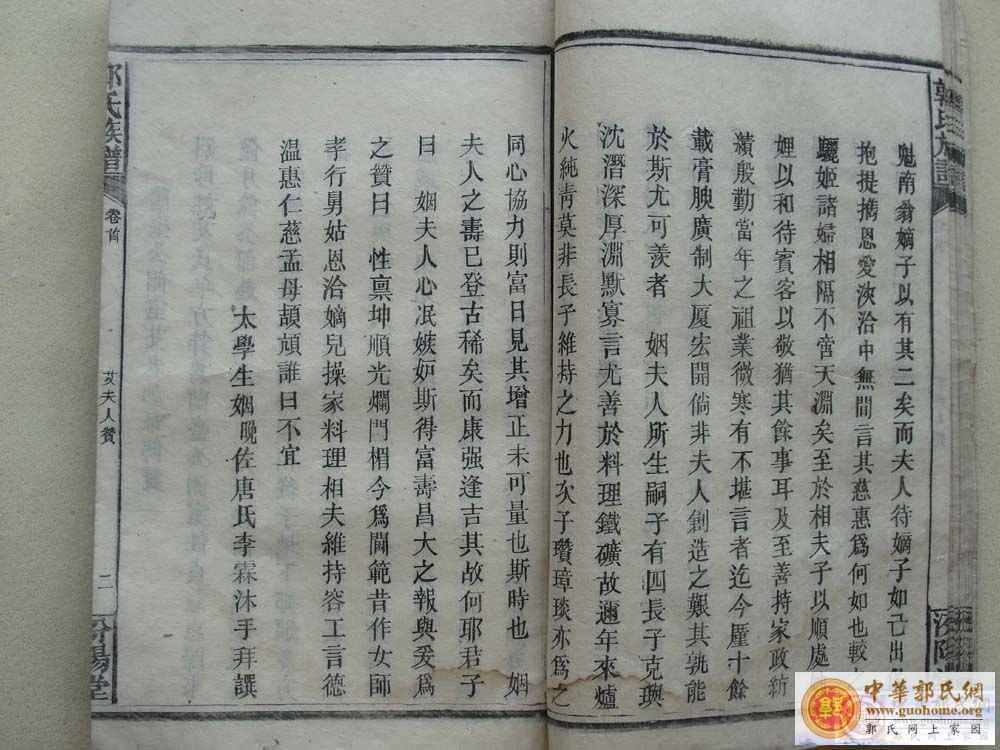 郭氏族譜
魁南翁嫡子以有其二矣而夫人待嫡子如己出
抱提攜恩愛浹洽中無間言其慈惠爲何如也較
驪姬諸婦相隔不啻天淵矣至於相夫子以順處
娌以和待賓客以敬猶其餘事耳及至善持家政紡
績殷勤當年之祖業微寒有不堪言者迄今厪十餘
載膏腴廣制大厦宏開倘非夫人創造之艱其孰能
於斯尤可羨者 姻夫人所生嗣子有四長子克璵
沈潛深厚淵默寡言尤善於料理鐵礦故邇年來爐
火純青莫非長子維持之力也次子瓚璋琰亦爲之
同心協力則富日見其增正未可量也斯時也 姻
夫人之壽已登古稀矣而康强逢吉其故何耶君子
曰 姻夫人心泯嫉妒斯得富壽昌大之報與爰爲
之贊曰 性禀坤順光爛門楣今爲閫範昔作女師
孝行舅姑恩洽嫡兒操家料理相夫維持容工言德
温惠仁慈孟母頡頏誰曰不宜
太學生姻晚佐唐氏李霖沐手拜譔
郭氏族譜
卷首
艾夫人贊
二
汾陽堂
中華郭氏網
www.guohome.org
郭氏网上家园